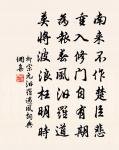 南來不作楚臣悲
重入修門自有期
為報春風汨羅道
莫將波浪枉明時
柳宗元汨羅遇風詞典
網集